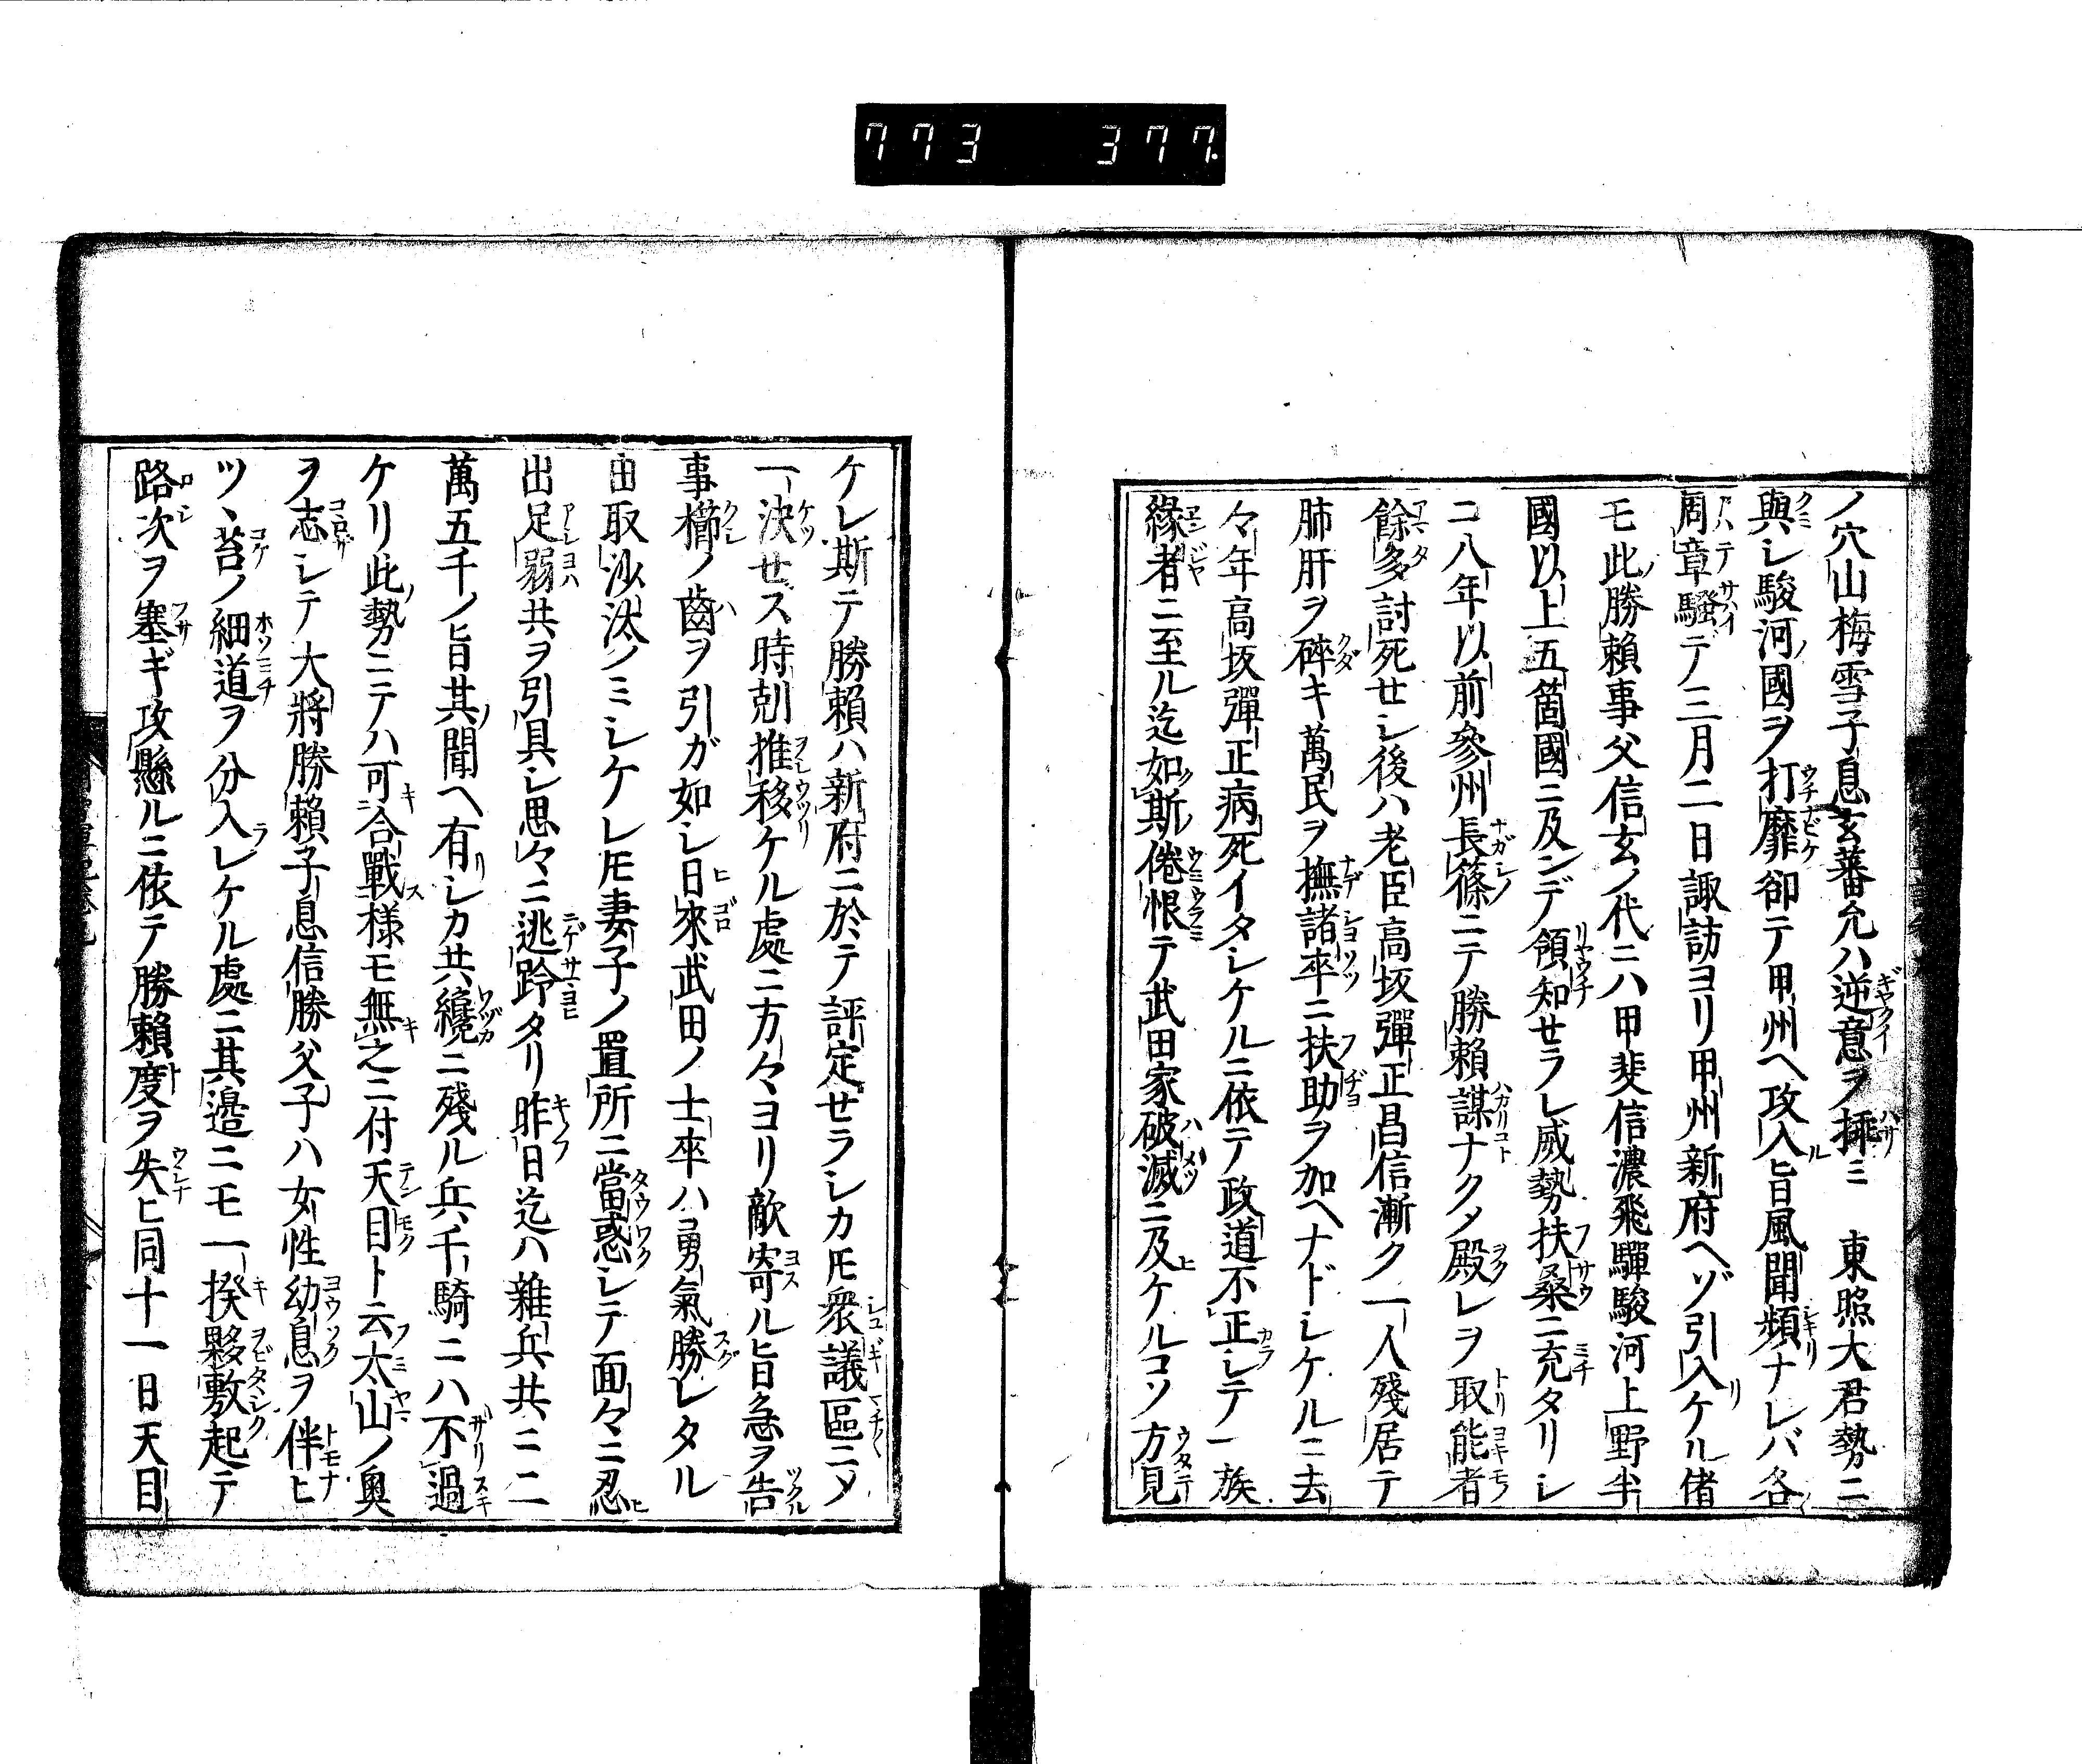 773 377.
ノ穴山梅雪子息玄蕃允ハ逆意ヲ挿ミ 東照大君勢ニ
與シ駿河ノ國ヲ打靡卻テ甲州ヘ攻入旨風聞頻ナレバ各
周章騷デ三月二日諏訪ヨリ甲州新府ヘゾ引入ケル偖
モ此勝賴事父信玄ノ代ニハ甲斐信濃飛驒駿河上野半
國以上五箇國ニ及ンデ領知せラレ威勢扶桑ニ充タリシ
ニ八年以前參州長篠ニテ勝賴謀ナクメ殿レヲ取能者
餘多討死せシ後ハ老臣高坂彈正昌信漸ク一人殘居テ
肺肝ヲ碎キ萬民ヲ撫諸卒ニ扶助ヲ加ヘナドシケルニ去
々年高坂彈正病死イタシケルニ依テ政道不正シテ一族
緣者ニ至ル迄如斯倦恨テ武田家破滅ニ及ケルコソ方見
ケレ斯テ勝賴ハ新府ニ於テ評定せラシカ𪜈衆議區ニメ
一決せズ時尅推移ケル處ニ方々ヨリ敵寄ル旨急ヲ告
事櫛ノ齒ヲ引ガ如シ日來武田ノ士卒ハ勇氣勝レタル
由取沙汰ノミシケレ𪜈妻子ノ置所ニ當惑シテ面々ニ忍
出足弱共ヲ引具シ思々ニ逃跉タリ昨日迄ハ雜兵共ニ二
萬五千ノ旨其聞ヘ有シカ共纔ニ殘ル兵千騎ニハ不過
ケリ此勢ニテハ可合戰樣モ無之ニ付天目ト云太山ノ奥
ヲ志シテ大將勝賴子息信勝父子ハ女性幼息ヲ伴ヒ
ツヽ苔ノ細道ヲ分入レケル處ニ其邉ニモ一揆夥敷起テ
路次ヲ塞ギ攻懸ルニ依テ勝賴度ヲ失ヒ同十一日天目